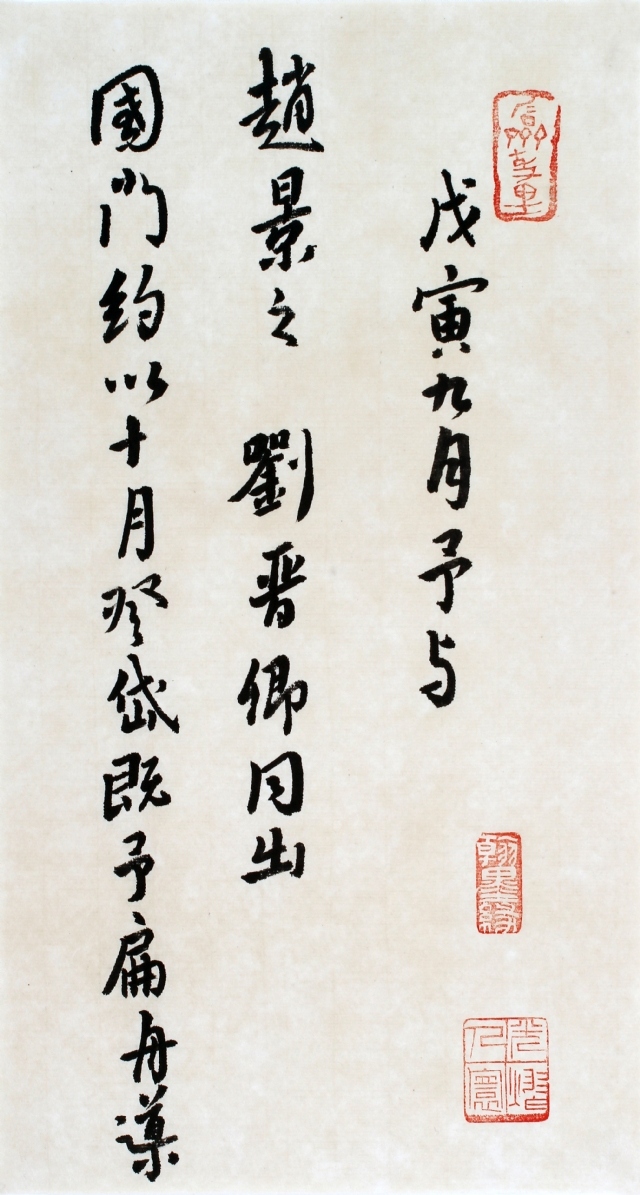 戊寅九月予与
趙景之 劉晋卿同出
國門約以十月登岱既予扁舟
翰墨緣